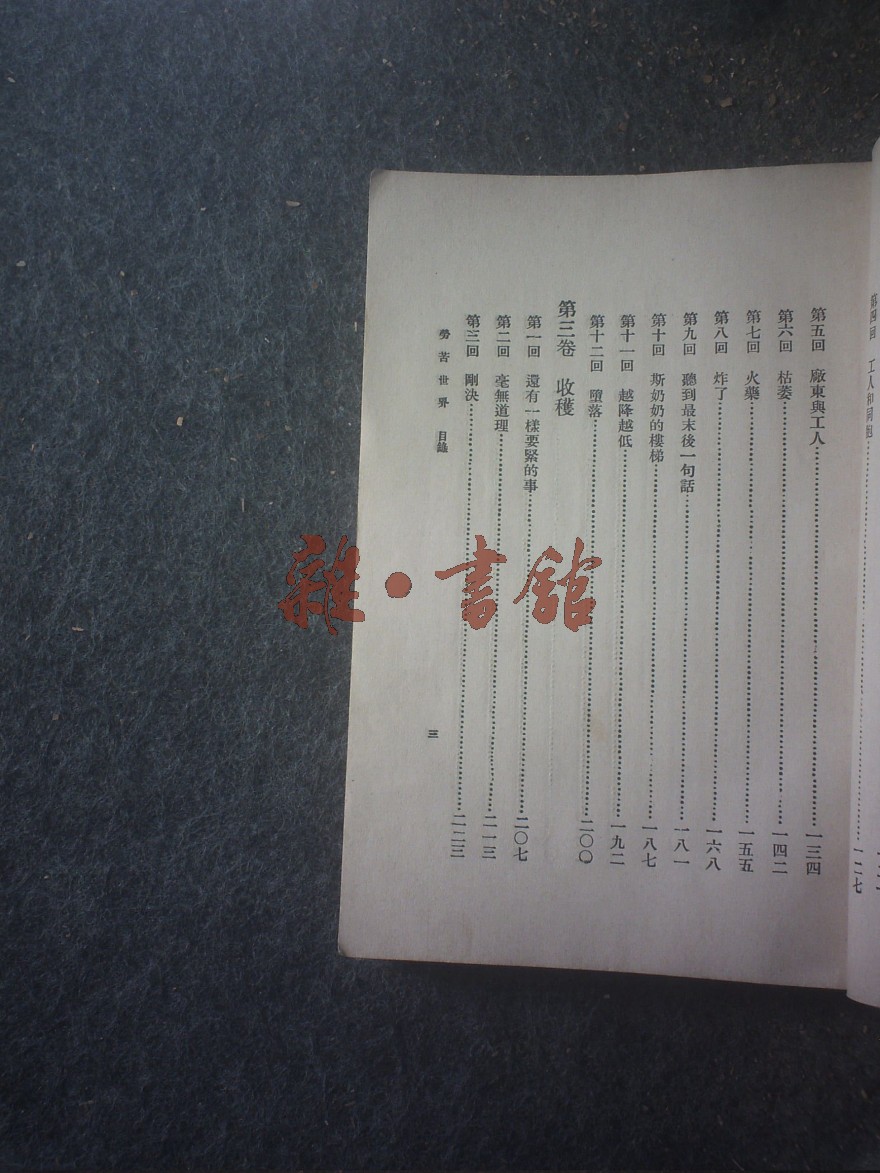 第四回 工人和同胞 一二七
第五回 廠東與工人 一三四
第六回 枯萎 一四二
第七回 火藥 一五五
第八回 炸了 一六八
第九回 聽到最末後一句話 一八一
第十回 斯奶奶的樓梯 一八七
第十一回 越降越低 一九二
第十二回 墮落 二〇〇
第三卷 收穫
第一回 還有一樣要緊的事 二〇七
第二回 毫無道理 二一三
第三回 剛決 二二三
勞苦世界 目錄
三
雜·書館